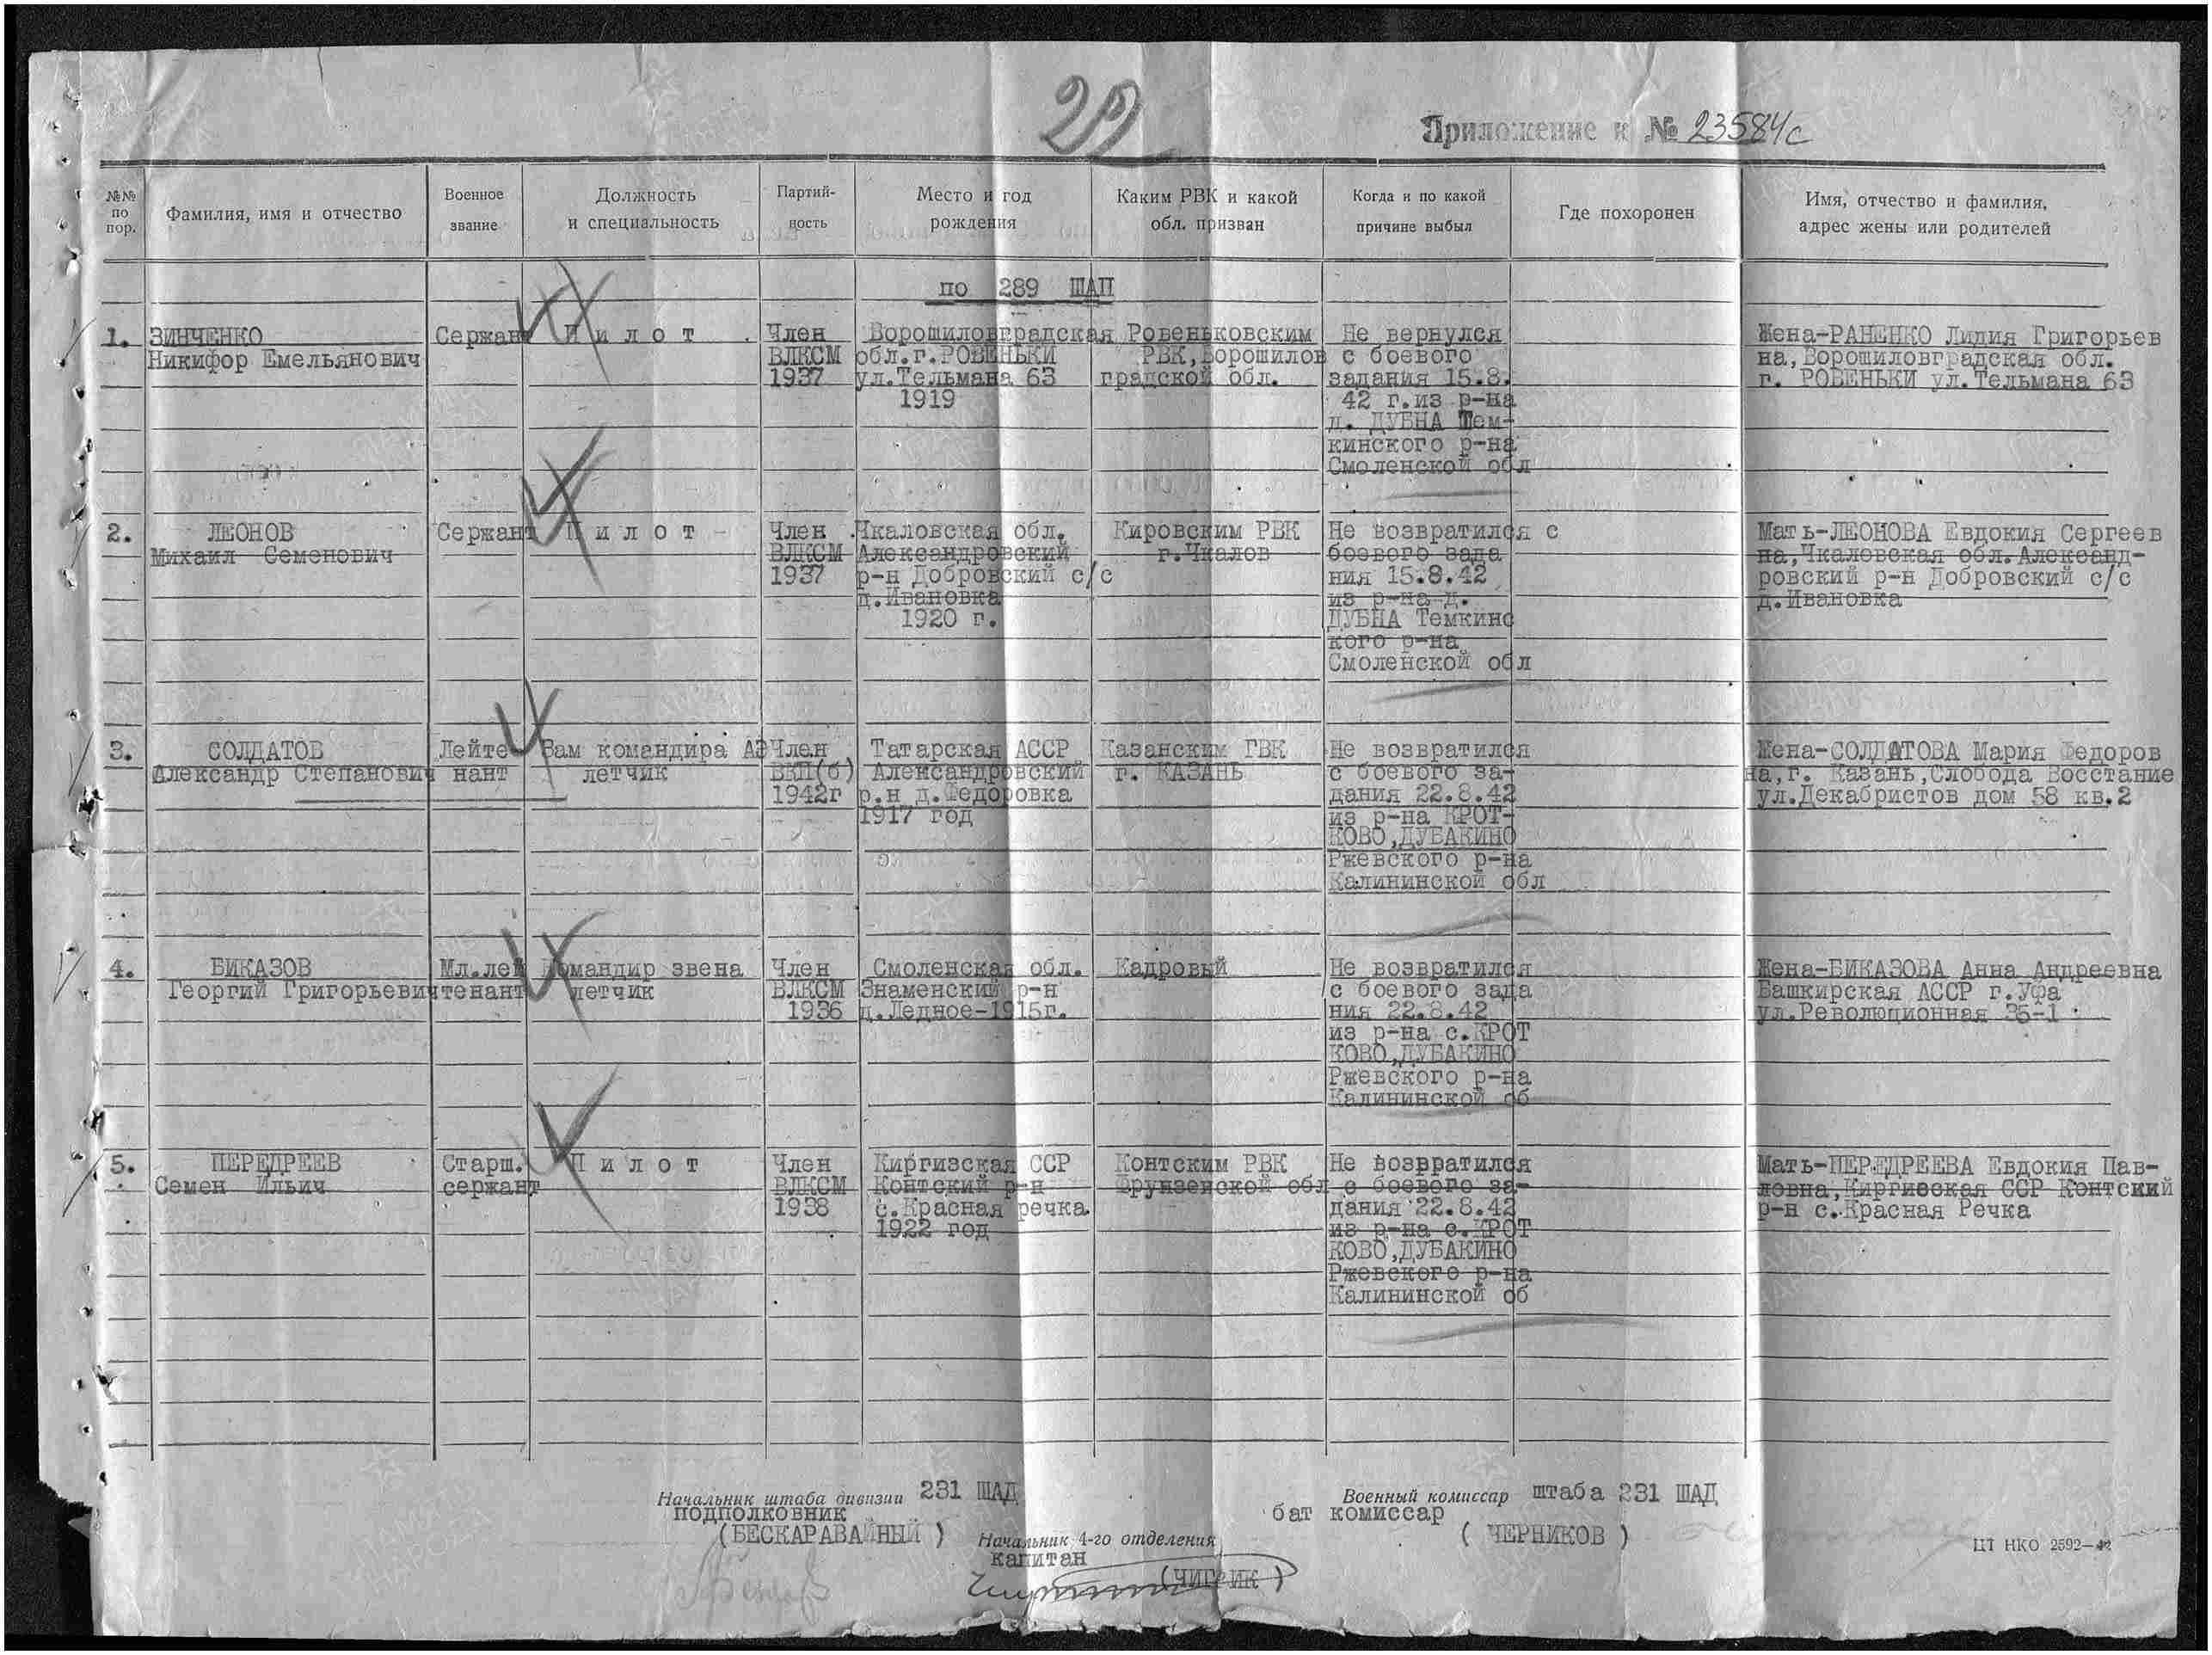 29
Приложение к № 23584с
№№ по пор.
Фамилия, имя и отчество
Военное звание
Должность и специальность
Партий-ность
Место и год рождения
Каким РВК и какой обл. призван
Когда и по какой причине выбыл
Где похоронен
Имя, отчество и фамилия, адрес жены или родителей
по 289 ШАП
1. ЗИНЧЕНКО Сержант Пилот Член Ворошиловградская Ровеньковским Не вернулся Жена-РАНЕНКО Лидия Григорьев
Никифор Емельянович ВЛКСМ обл.г.РОВЕНЬКИ РВК,Ворошилов с боевого на,Ворошиловградская обл.
1937 ул.Тельмана 63 градской обл. задания 15.8. г. РОВЕНЬКИ ул.Тельмана 63
1919 42 г.из р-на
д. ДУБНА Тем-
кинского р-на
Смоленской обл
2. ЛЕОНОВ Сержант Пилот Член Чкаловская обл. Кировским РВК Не возвратился с Мать-ЛЕОНОВА Евдокия Сергеев
Михаил Семенович ВЛКСМ Александровский г.Чкалов боевого зада на,Чкаловская обл.Александ-
1937 р-н Добровский с/с ния 15.8.42 ровский р-н Добровский с/с
д.Ивановка из р-на д. д.Ивановка
1920 г. ДУБНА Темкинс
кого р-на
Смоленской обл
3. СОЛДАТОВ Лейте Зам командира АЭ Член Татарская АССР Казанским ГВК Не возвратился Жена-СОЛДАТОВА Мария Федоров
Александр Степанович нант летчик ВКП(б) Александровский г. КАЗАНЬ с боевого за- на,г. Казань,Слобода Восстание
1942г р.н д.Федоровка дания 22.8.42 ул.Декабристов дом 58 кв.2
1917 год из р-на КРОТ-
КОВО,ДУБАКИНО
Ржевского р-на
Калининской обл
4. БИКАЗОВ Мл.лей Командир звена Член Смоленская обл. Кадровый Не возвратился Жена-БИКАЗОВА Анна Андреевна
Георгий Григорьевич тенант летчик ВЛКСМ Знаменский р-н с боевого зада Башкирская АССР г.Уфа
1936 д.Ледное-1915г. ния 22.8.42 ул.Революционная 35-1
из р-на с.КРОТ
КОВО,ДУБАКИНО
Ржевского р-на
Калининской об
5. ПЕРЕДРЕЕВ Старш. Пилот Член Киргизская ССР Контским РВК Не возвратился Мать-ПЕРЕДРЕЕВА Евдокия Пав-
Семен Ильич сержант ВЛКСМ Контский р-н Фрунзенской обл с боевого за- ловна,Киргизская ССР Контский
1938 с.Красная речка. дания 22.8.42 р-н с.Красная Речка
1922 год из р-на с.КРОТ
КОВО,ДУБАКИНО
Ржевского р-на
Калининской об
Начальник штаба дивизии 231 ШАД
подполковник
(БЕСКАРАВАЙНЫЙ)
Военный комиссар штаба 231 ШАД
бат комиссар
( ЧЕРНИКОВ )
Начальник 4-го отделения
капитан
(ЧИГРИК )
ЦТ НКО 2592—42